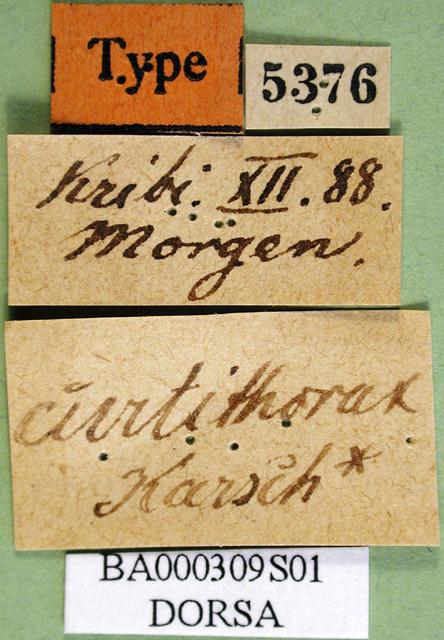 Type
5376
Kribi. XII. 88.
Morgen.
curtithorax
Karsch*
BA000309S01
DORSA